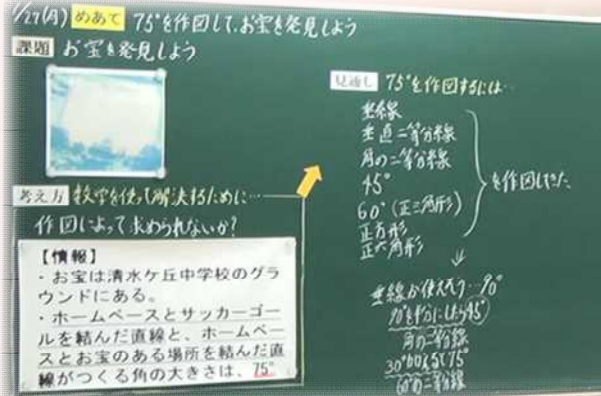 1/27(月) めあて 75°を作図して、お宝を発見しよう
課題 お宝を発見しよう
考え方 数学を使って解決するために…
作図によって求められないか?
【情報】
・お宝は清水ケ丘中学校のグラ
ウンドにある。
・ホームベースとサッカーゴー
ルを結んだ直線と、ホームベー
スとお宝のある場所を結んだ直
線がつくる角の大きさは、75°
見通し 75°を作図するには…
垂線
垂直二等分線
角の二等分線
45°
60°(正三角形)
正方形
正六角形
を作図してきた
垂線が使えそう…90°
90°を半分にしたら45°
角の二等分線
30°
75°
60°の二等分線